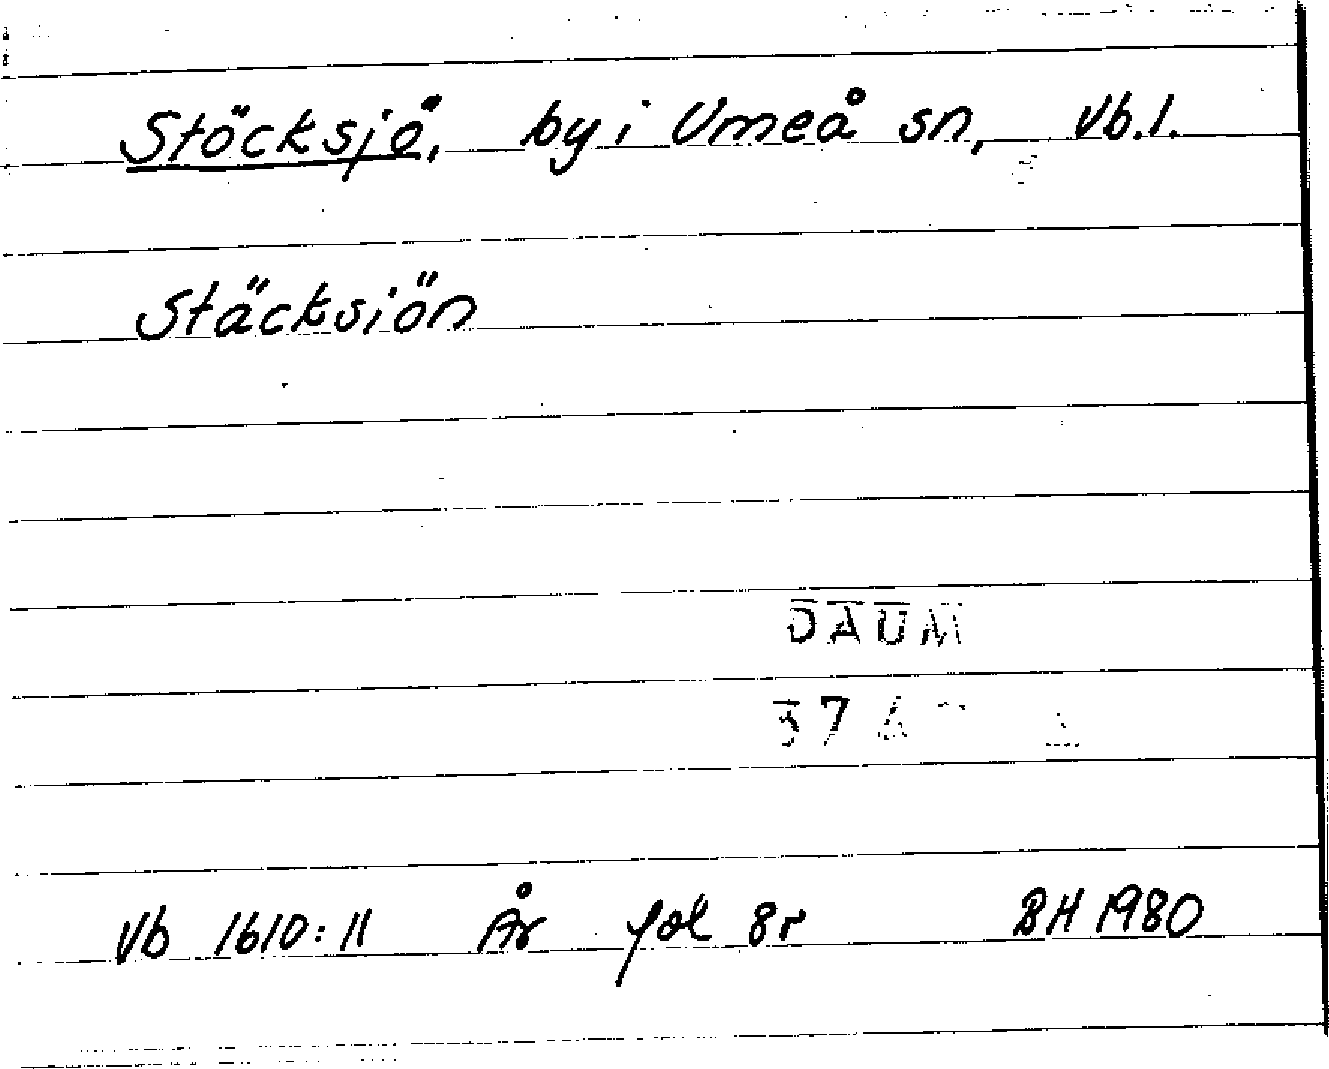 Stöcksjö, by i Umeå sn, Vb.l.
Stäcksiön
DAUM
Vb 1610:11 År fol 8r BH 1980